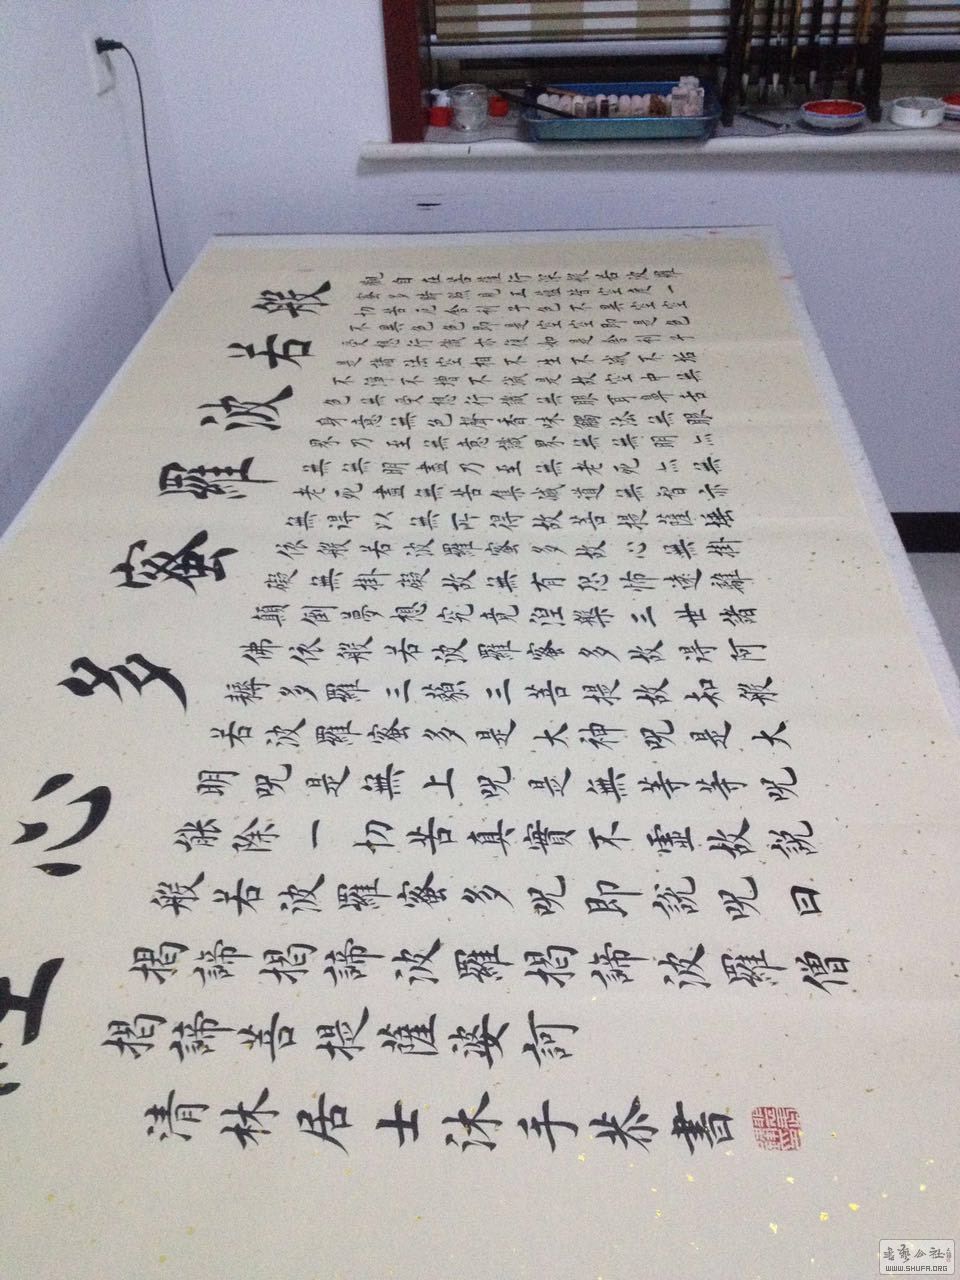 般若波羅蜜多心經
觀自在菩薩行深般若波羅
蜜多時照見五蘊皆空度一
切苦厄舍利子色不異空空
不異色色即是空空即是色
受想行識亦復如是舍利子
是諸法空相不生不滅不垢
不淨不增不減是故空中無
色無受想行識無眼耳鼻舌
身意無色聲香味觸法無眼
界乃至無意識界無無明亦
無無明盡乃至無老死亦無
老死盡無苦集滅道無智亦
無得以無所得故菩提薩埵
依般若波羅蜜多故心無掛
礙無掛礙故無有恐怖遠離
顛倒夢想究竟涅槃三世諸
佛依般若波羅蜜多故得阿
耨多羅三藐三菩提故知般
若波羅蜜多是大神呪是大
明呪是無上呪是無等等呪
能除一切苦真實不虛故說
般若波羅蜜多呪即說呪曰
揭諦揭諦波羅揭諦波羅僧
揭諦菩提薩婆訶
清林居士沐手恭書
WWW.SHUFA.ORG